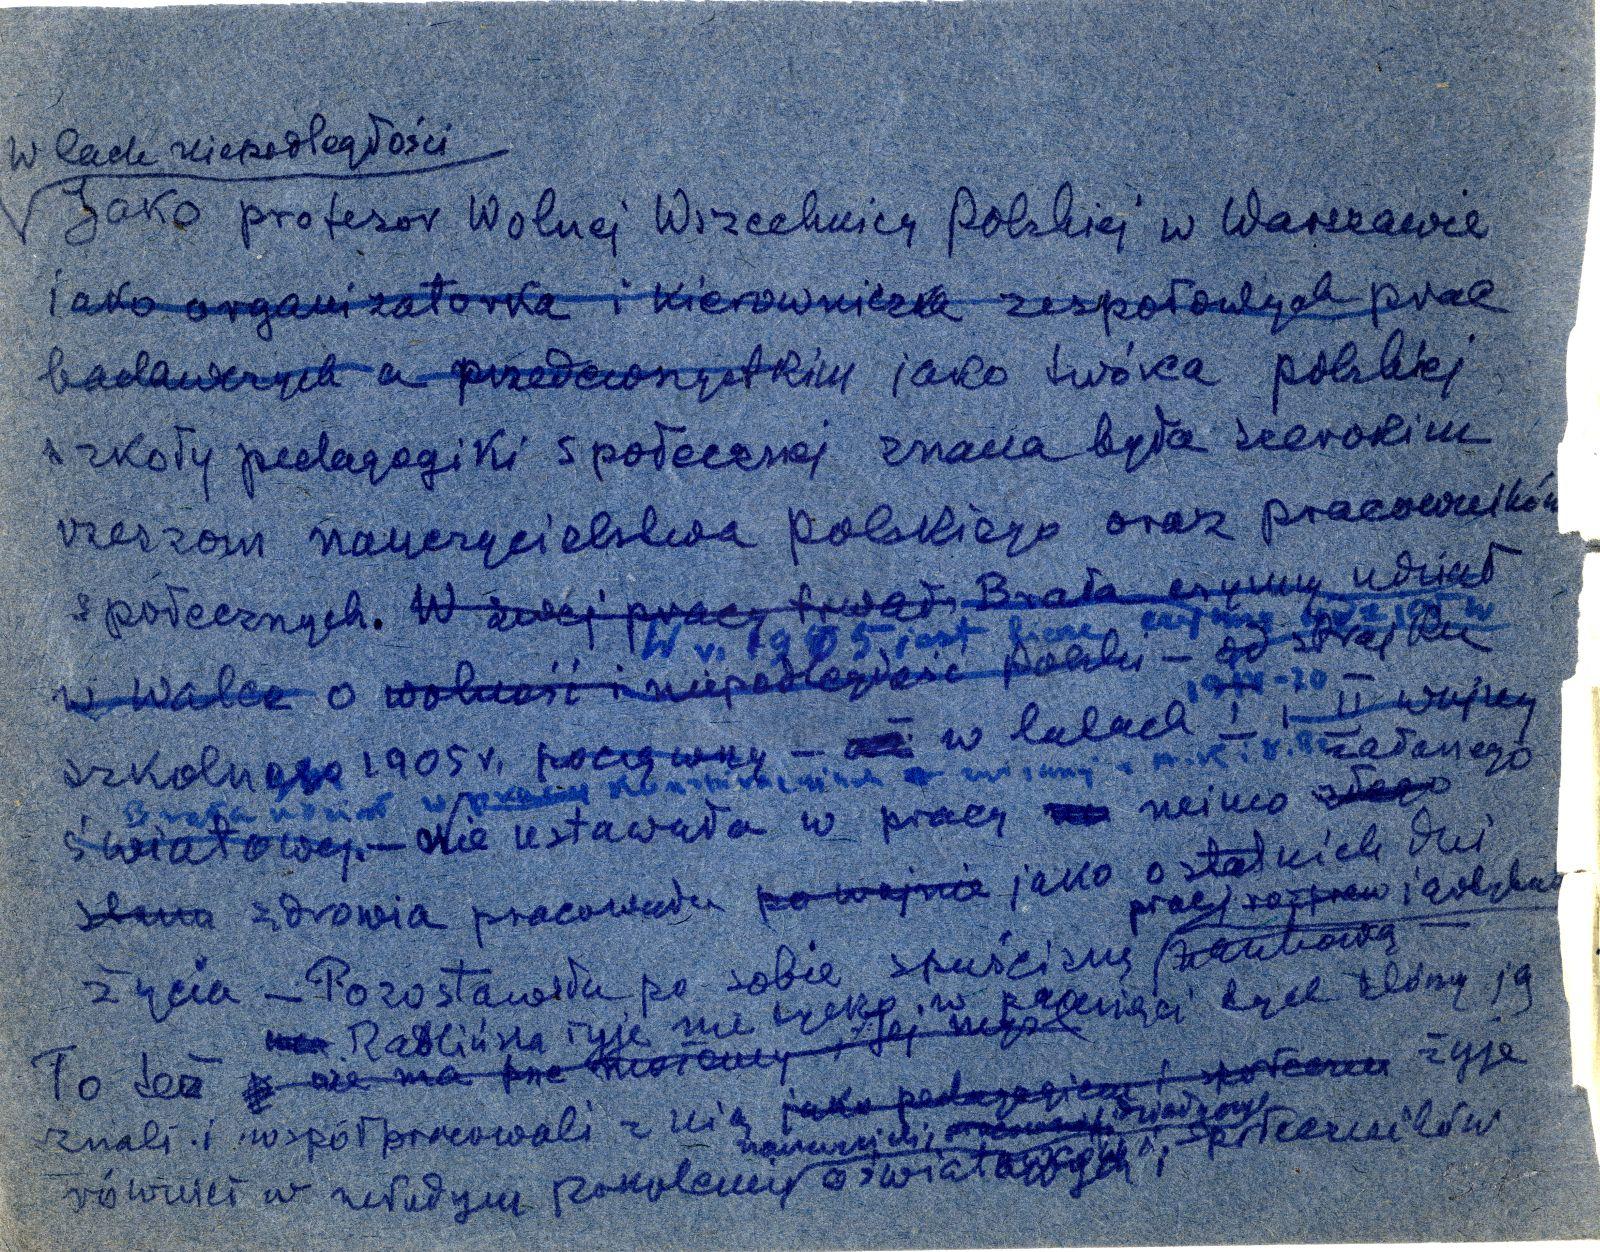 W latach niepodległości
Jako profesor Wolnej Wszechnicy Polskiej w Warszawie
jako organizatorka i kierowniczka zespołowych prac
badawczych a przedewszystkim jako twórca polskiej
szkoły pedagogiki społecznej znana była szerokim
rzeszom nauczycielstwa polskiego oraz pracowników
społecznych. W swej pracy Brała czynny udział
W r. 1905 czynny udział w
w walce o wolność i niepodległość Polski – od strajku
szkolnego 1905 r. począwszy – w latach I i II wojny
Brała udział w pracy
światowej. – Nie ustawała w pracy mimo złego
stanu zdrowia pracowała po wojnie jako ostatnich dni
prac, rozpraw i
życia – Pozostawiła po sobie spuściznę naukową –
Radlińska żyje nie tylko w pamięci tych którzy ją
To też nie ma
znali i współpracowali z nią jako pedagogiem i społecznym żyje
nauczycieli,
również w młodym pokoleniu oświatowych i społeczników